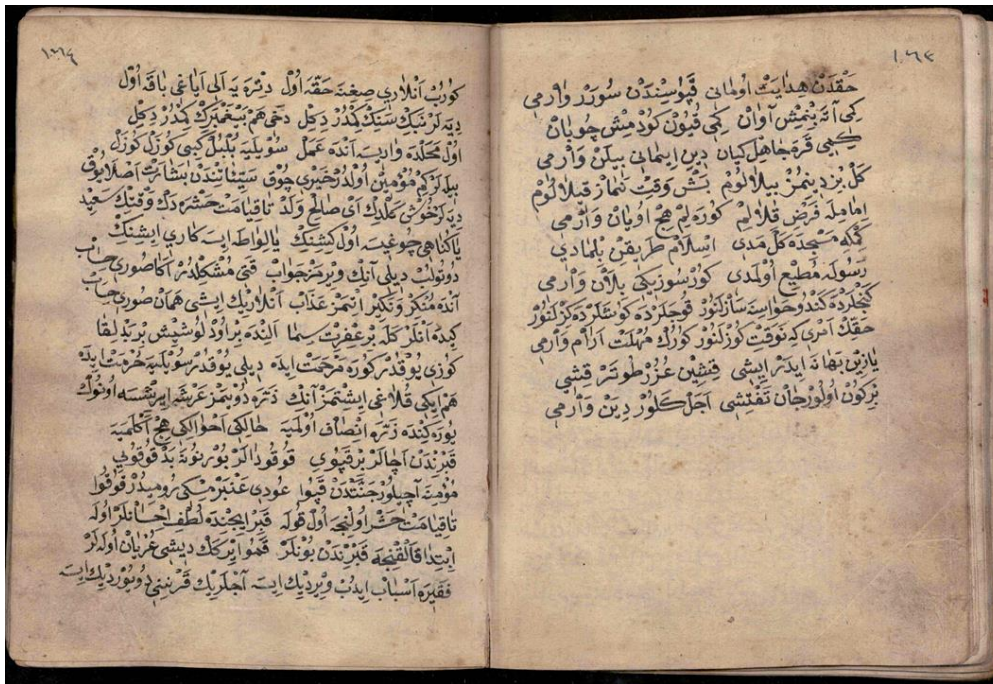 ١٠٦٣
حقدن هدايت اولماني قپوسيندن سورر وارمي
كمي آته بنمش آوان كمي قيون كودمش چوبان
كمي قره جاهل كيان دين ايماني بيلن وارمي
كل بز دينمز بيلالوم بش وقت نماز قيلالوم
امامله فرض قلالم كوره لم هيچ اويان وارمي
كمكه مسجده كلمدي اسلام طريقن بلمادي
رسوله مطيع اولمدي كورسوزبكي بلان وارمي
كنجلرده كندو حواسنه سازلنور قوجلرده كزلنور
حقك امري كه نوقت كوزلنور كورك مهلت ارام وارمي
يازين بهانه ايدر ايشي قشين عذر طوتر قيشي
بركون اولور جان تفتيشي اجل كلور دين وارمي
١٠٦٤
كورب آنلاري صغنه حقه اول دتره يه الي اياغي باقه اول
ديه لر تنك سنك كمدر دكل دخي هم پيغمبرك كمدر دكل
اول محلده واريسه آنده عمل سويليه بلبل كبي كوزل كوزل
بيله لركم مؤمن اولدر خيري چوق سيئاتندن بشارت اصلا يوق
ديه لر خوش كلدك اي صالح ولد تا قيامت حشره دك وقتك سعيد
يا كناهي چوغيسه اول كيشنك يا لواطه ايسه كاري ايشنك
دوتولب ديلي آنك ويرمز جواب قتي مشكلدر اكا صوري حساب
آنده منكر و نكير ايتمز عذاب آنلاريك ايشي همان صوري حساب
كيده آنلر كله بر عفريت سيما النده بر اود لو شيش بر بد لقا
كوزي يوقدر كوره مرحمت ايده ديلي يوقدر سويليه حرمت ايده
هم ايكي قلاغي ايشتمز آنك ذره دويمز عرشه ايرشسه اونوك
يوره كنده ذره انصاف اولميه حالكي احوالكي هيچ آكلميه
قبرندن آچالر بر قپوي قوقودالر بورنونه بد قوقوي
مؤمنه آچيلور جنتدن قپوا عودي عنبر مسكي روميدر قوقوا
تا قيامت حشر اولنجه اول قوله قبر ايچنده لطف احسانلر اوله
ابتدا قالقنجه قبرندن بونلر قمو ايركك ديشي عريان اوله لر
فقيره اسباب ايدب ويرديك ايسه آجلريك قرنيني دويورديك ايسه